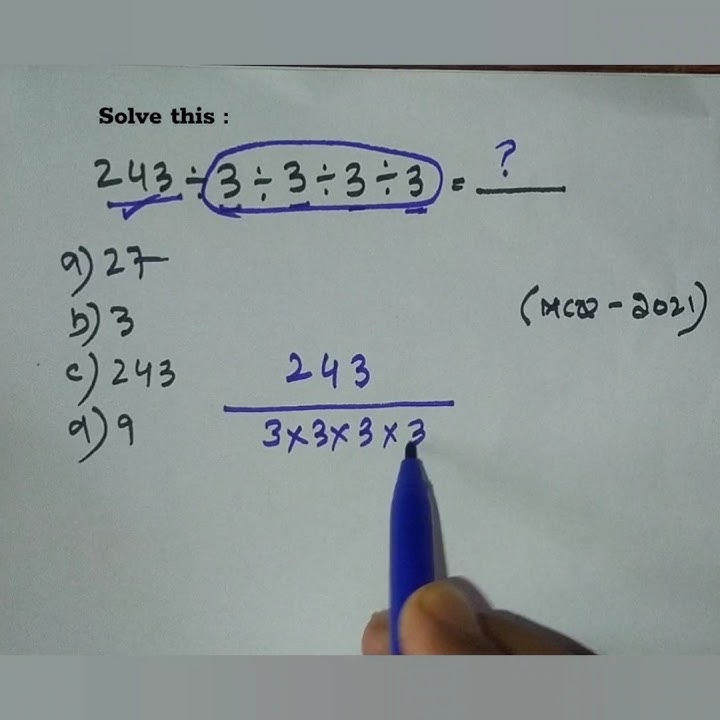 Solve this :
243 ÷ 3 ÷ 3 ÷ 3 ÷ 3 = ?
a) 27
b) 3
c) 243
d) 9
( - 2021)
243
3×3×3×3